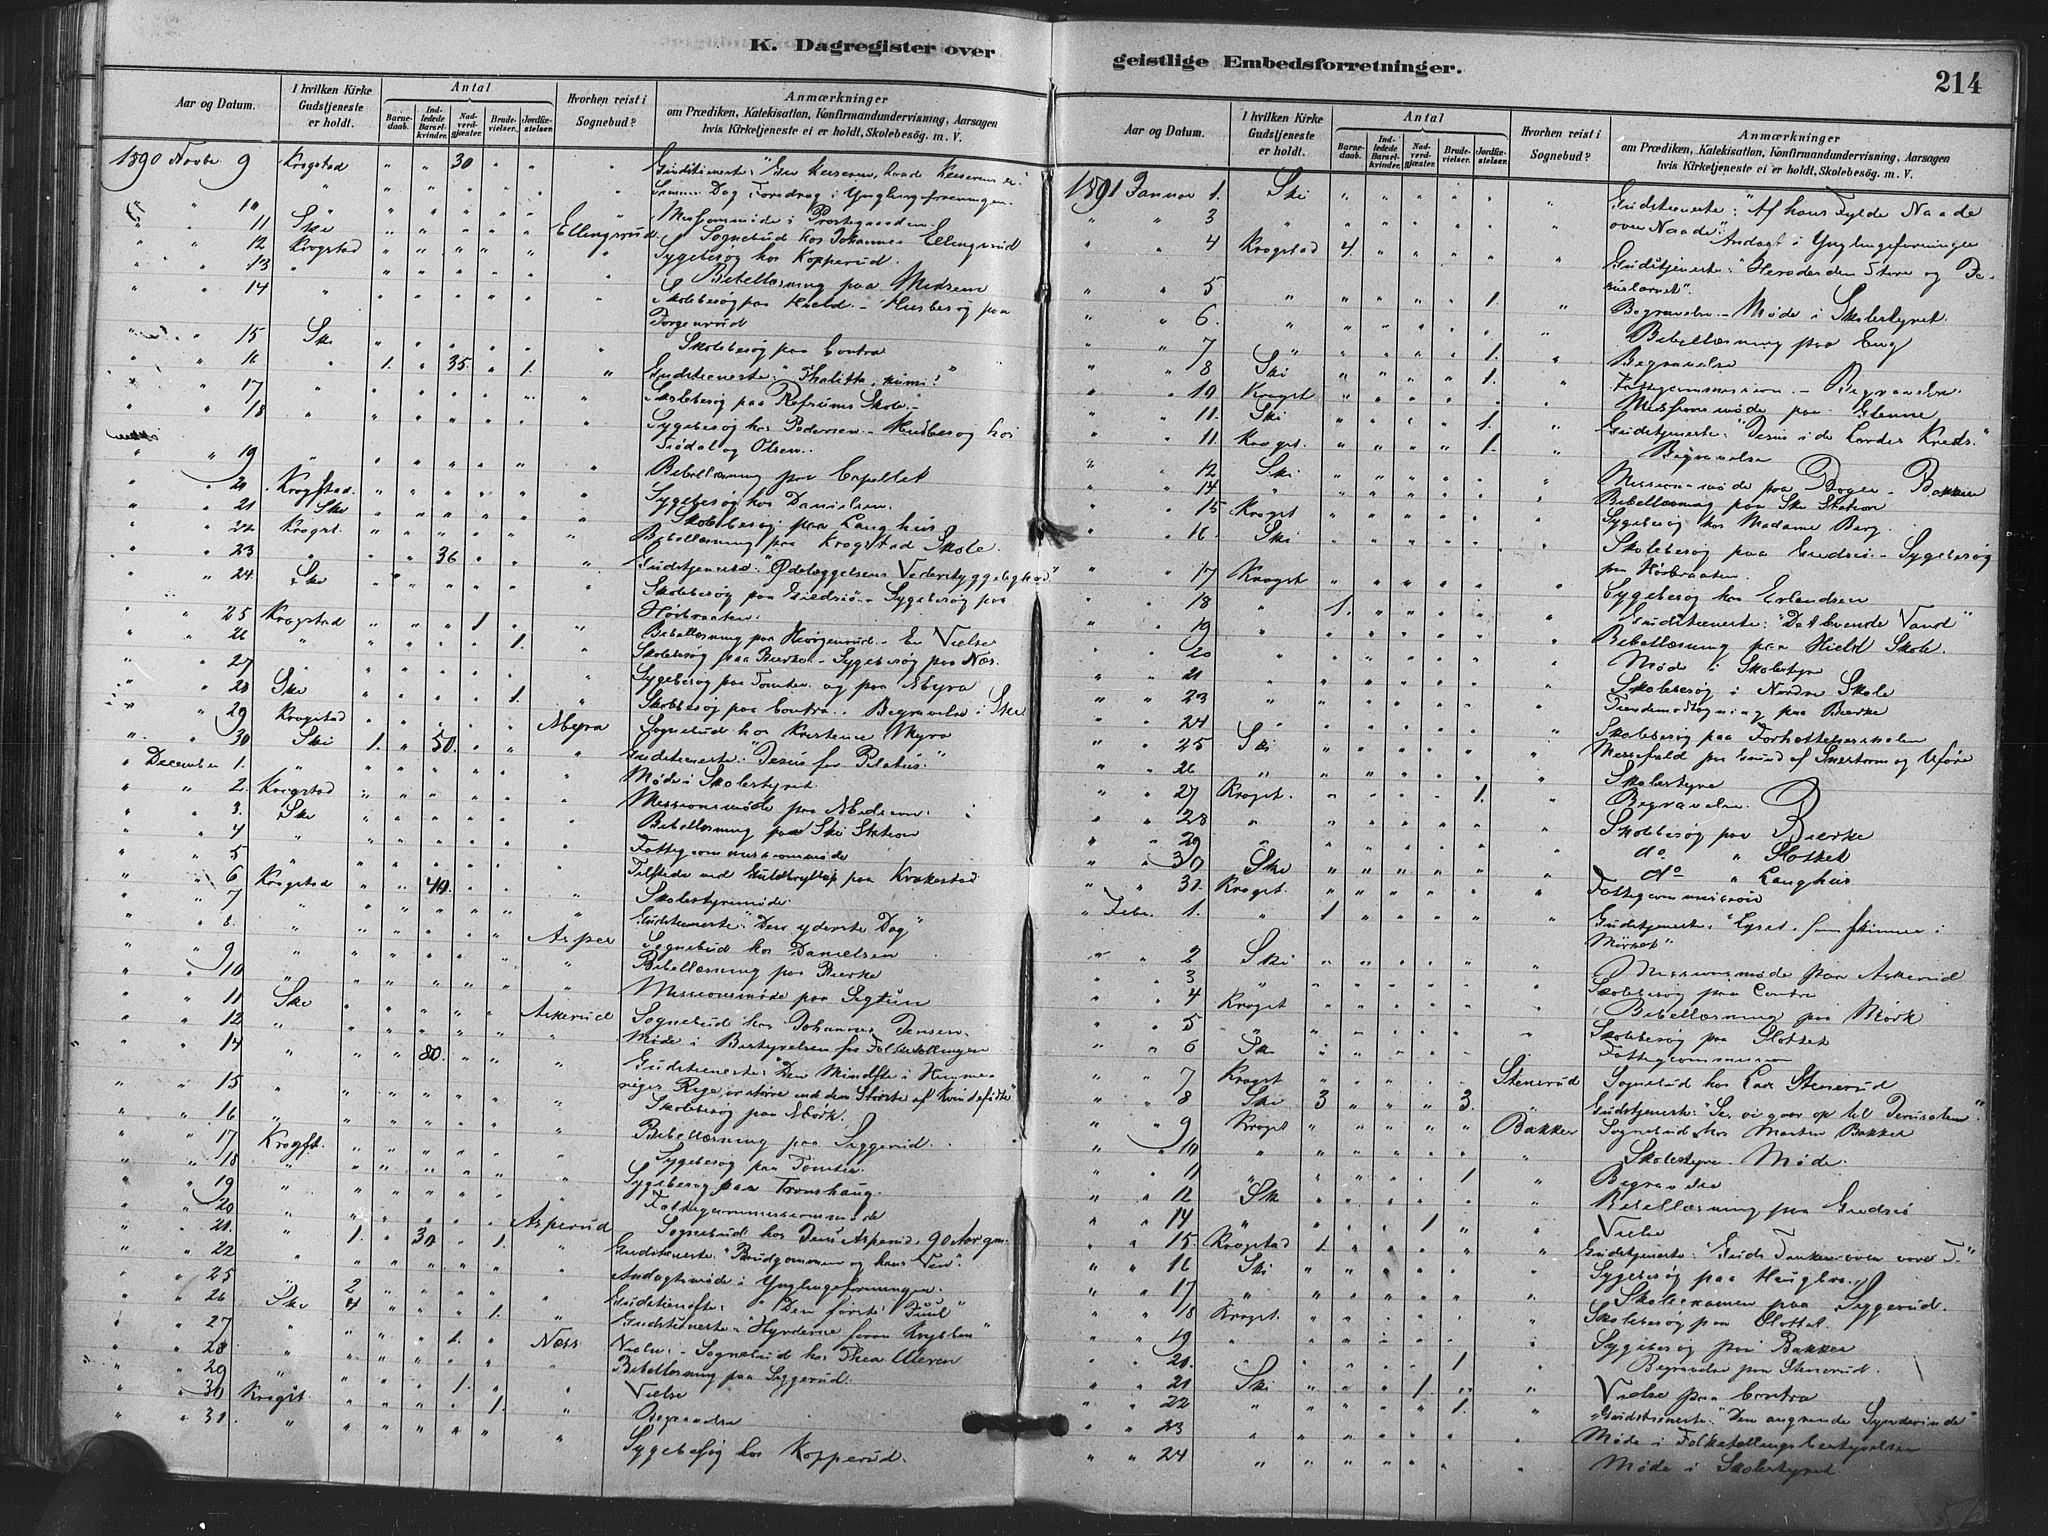 K. Dagregister over geistlige Embedsforretninger.
214
Aar og Datum.
I hvilken Kirke Gudstjeneste er holdt.
Antal
Barnedaab.
Indledede Barselkvinder.
Nadverdgjæster.
Brudevielser.
Jordfæstelser.
Hvorhen reist i Sognebud?
Anmærkninger
om Prædiken, Katekisation, Konfirmandundervisning, Aarsagen
hvis Kirketjeneste ei er holdt, Skolebesög. m. V.
1890 Novbr 9 Krogstad " " 30 " " " Gudstieneste: "Giv Keiseren, hvad Keiserens er".
Samme Dag Foredrag i Ynglingeforeningen.
" " 10 " Missionsmøde i Præstegaarden.
" " 11 Ski Ellingsrud Sognebud hos Johannes Ellingsrud
" " 12 Krogstad Sygebesøg hos Kopperud.
" " 13 " Bibellæsning paa Midsem
" " 14 " Skolebesøg paa Hield - Husbesøg paa
" " 15 Ski Skolebesøg paa Contra
" " 16 " 1. " 35. " 1. " Gudstieneste: "Thalitta, kumi!"
" " 17 " Skolebesøg paa Refsums Skole.
" " 18 " Sygebesøg hos Pedersen - Husbesøg hos
og Olsen.
" " 19 " Bibellæsning paa Capellet
" " 20 Krogstad Sygebesøg hos Danielsen.
" " 21 Ski Skolebesøg paa Langhus
" " 22 Krogst. Bibellæsning paa Krogstad Skole.
" " 23 " 36 Gudstjeneste: "Ødelæggelsens Vederstyggelighed"
" " 24 Ski Skolebesøg paa - Sygebesøg paa
" " 25 Krogstad 1 Bibellæsning paa - En Vielse
" " 26 " 1. Skolebesøg paa Bierke - Sygebesøg paa Næs.
" " 27 " Sygebesøg paa Tomter og paa Myra
" " 28 Ski 1. Skolebesøg paa Contra. Begravelse i Ski
" " 29 Krogstad Myra Sognebud hos Kristense Myra
" " 30 Ski 1. " 50. Gudstieneste: "Jesus for Pilatus."
" December 1. " Møde i Skolestyret
" " 2. Krogstad Missionsmøde paa Midsem.
" " 3. Ski Bibellæsning paa Ski Station
" " 4 " Fattigcommissionsmøde
" " 5 " Tilstede ved Guldbryllup paa Krakestad
" " 6 Krogstad " " 40. Skolestyremøde
" " 7 " Gudstieneste: "Den yderste Dag"
" " 8. " Asper Sognebud hos Danielsen
" " 9 " Bibellæsning paa Bierke
" " 10 " Missionsmøde paa Sigtun
" " 11 Ski Askerud Sognebud hos Johannes Jensen.
" " 12 " Møde i Bestyrelsen for Folketællingen
" " 14 " 80. Gudstieneste: "Den Mindste i Himme-
riges Rige, er større end den Største af Kvindefødte"
" " 15 " Skolebesøg paa Mørk.
" " 16 " Bibellæsning paa Siggerud.
" " 17 Krogst. Sygebesøg paa Tomter.
" " 18 " Sygebesøg paa Tronshaug.
" " 19 " Fattigcommissionsmøde
" " 20 " Asperud Sognebud hos Jens Asperud, 90 Aar gm.
" " 21. " 1. 30 1. Gudstieneste: "Brudgommen og hans Ven".
" " 22 " Andagtsmøde i Ynglingeforeningen.
" " 25 " 2 Gudstieneste: "Den første Juul"
" " 26 Ski 4 1. Gudstieneste: "Hyrderne foran Krybben"
" " 27 " 1. Næss Vielse. - Sognebud hos Thea
" " 28 " Bibellæsning paa Siggerud.
" " 29 " 1. Vielse
" " 30 Krogst. 1. Begravelse
" " 31. " Sygebesøg hos Kopperud.
Aar og Datum.
I hvilken Kirke Gudstjeneste er holdt.
Antal
Barnedaab.
Indledede Barselkvinder.
Nadverdgjæster.
Brudevielser.
Jordfæstelser.
Hvorhen reist i Sognebud?
Anmærkninger
om Prædiken, Katekisation, Konfirmandundervisning, Aarsagen
hvis Kirketjeneste ei er holdt, Skolebesög. m. V.
1891 Januar 1. Ski Gudstieneste: "Af hans Fylde Naade
over Naade".
" " 3 " Andagt i Ynglingeforeningen
" " 4 Krogstad 4. Gudstjeneste: "Herodes den Store og Je-
susbarnet".
" " 5 " 1. Begravelse - Møde i Skolestyret.
" " 6. " Bibellæsning paa Eng
" " 7 " 1. Begravelse
" " 8 Ski 1. Fattigcommission. - Begravelse
" " 10 Krogst Missionsmøde paa Glenne
" " 11. Ski 1. Gudstjeneste: "Jesus i de Lærdes Kreds."
" " 11. Krogst. 1. Begravelse
" " 12 Ski Missionsmøde paa - Bakken
" " 14 " Bibellæsning paa Ski Station
" " 15 Krogst Sygebesøg hos Madame Berg.
" " 16. Ski Skolebesøg paa - Sygebesøg
paa Hørbraaten.
" " 17 Krogst Sygebesøg hos Erlandsen
" " 18 " 1. Gudstieneste: "Det levende Vand"
" " 19 " Bibellæsning paa Hield Skole.
" " 20 " Møde i Skolestyre
" " 21 " Skolebesøg i Nordre Skole
" " 23 " Tiendemodtagning paa Bierke
" " 24 " Skolebesøg paa
" " 25 Ski Messefald paa Grund af Snestorm og Uføre
" " 26 " Skolestyre
" " 27 Krogst. 1. Begravelse.
" " 28 " Skolebesøg paa Bierke
" " 29 " do. " Slottet
" " 30 Ski do " Langhus
" " 31. Krogst. Fattigcommission
" Febr. 1. " 1 Gudstjeneste: "Lyset, som skinner i
Mørket"
" " 2 Ski Missionsmøde paa Askerud
" " 3 " Skolebesøg paa Contra
" " 4 Krogst Bibellæsning paa Mørk
" " 5 " Skolebesøg paa Slottet
" " 6 Ski Fattigcommission
" " 7 Krogst Stenerud Sognebud hos Lars Stenerud
" " 8 Ski 3 3. Gudstjeneste: "Se, vi gaar op til Jerusalem".
" " 9 Krogst Bakker Sognebud hos Martin Bakker
" " 10 " Skolestyre. Møde.
" " 11 " 1 Begravelse
" " 12 Ski Bibellæsning paa
" " 14 " 1 Vielse
" " 15. Krogstad 1. Gudstjeneste: "Guds Tanker over vore T."
" " 16 Ski Sygebesøg paa Haugbro.
" " 17 " Skoleexamen paa Siggerud.
" " 18 Krogst Skolebesøg paa Slottet
" " 19 " Sygebesøg paa Bakker
" " 20. " 1 Begravelse paa Stenerud.
" " 21 Ski 1. Vielse paa Contra
" " 22 " 1. Gudstieneste: "Den angrende Synderinde"
" " 23 " Møde i Folketællingsbestyrelsen
" " 24 " Møde i Skolestyret